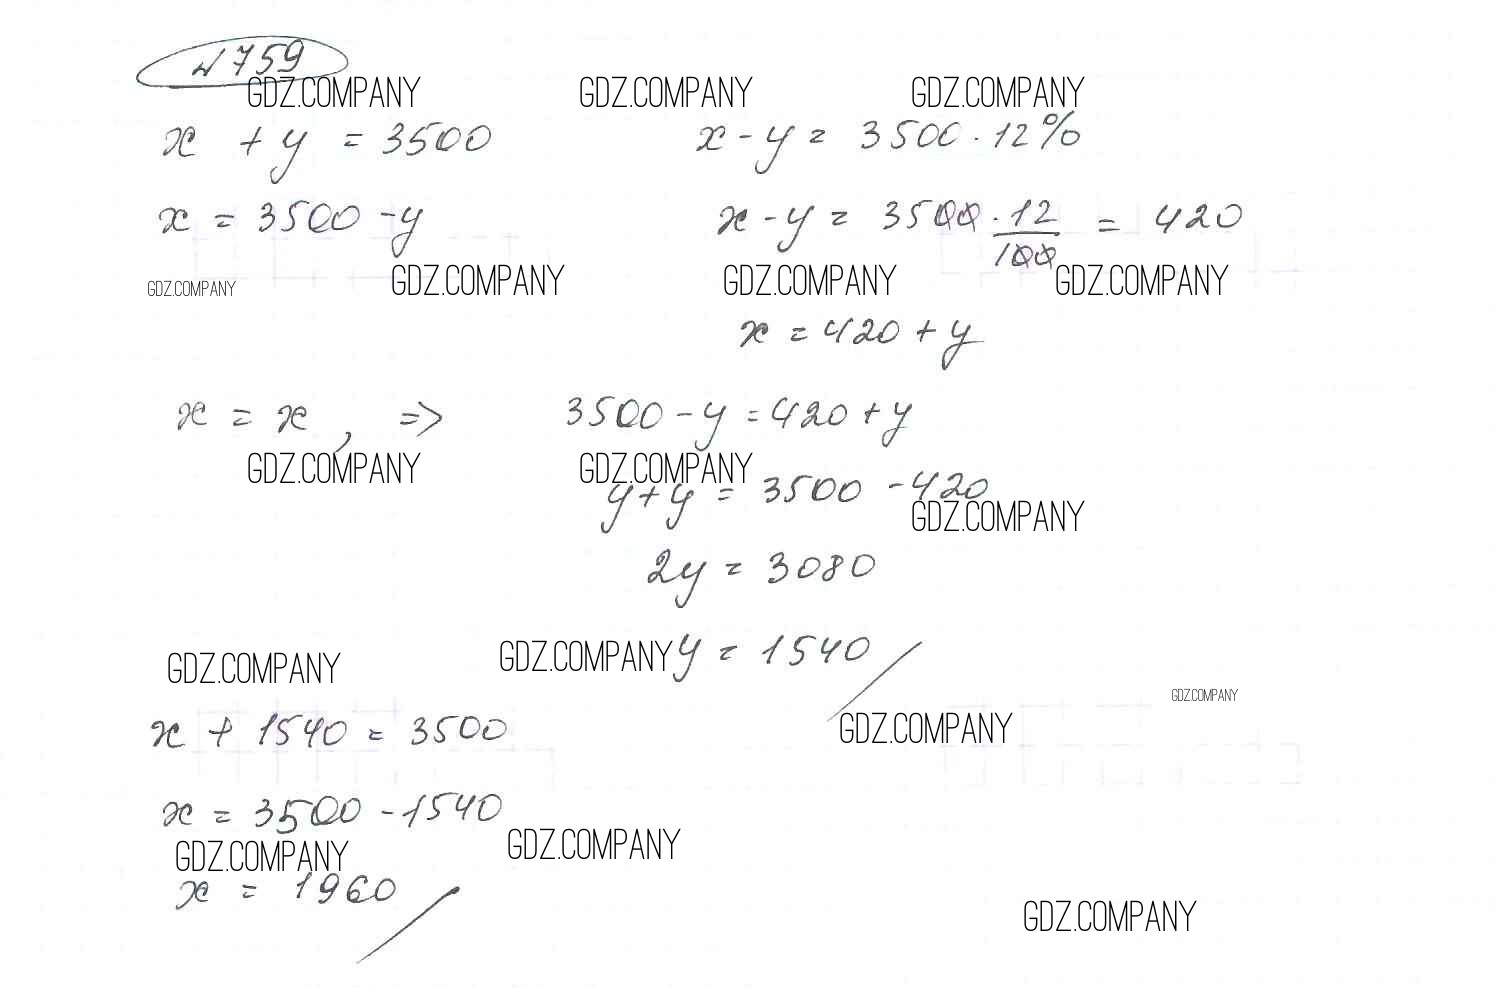 №759
GDZ.COMPANY GDZ.COMPANY GDZ.COMPANY
x + y = 3500 x - y = 3500 · 12%
x = 3500 - y x - y = 3500 · 12/100 = 420
GDZ.COMPANY GDZ.COMPANY GDZ.COMPANY GDZ.COMPANY
x = 420 + y
x = x, => 3500 - y = 420 + y
GDZ.COMPANY GDZ.COMPANY
y + y = 3500 - 420
GDZ.COMPANY
2y = 3080
GDZ.COMPANY GDZ.COMPANY y = 1540
GDZ.COMPANY
x + 1540 = 3500 GDZ.COMPANY
x = 3500 - 1540
GDZ.COMPANY GDZ.COMPANY
x = 1960
GDZ.COMPANY